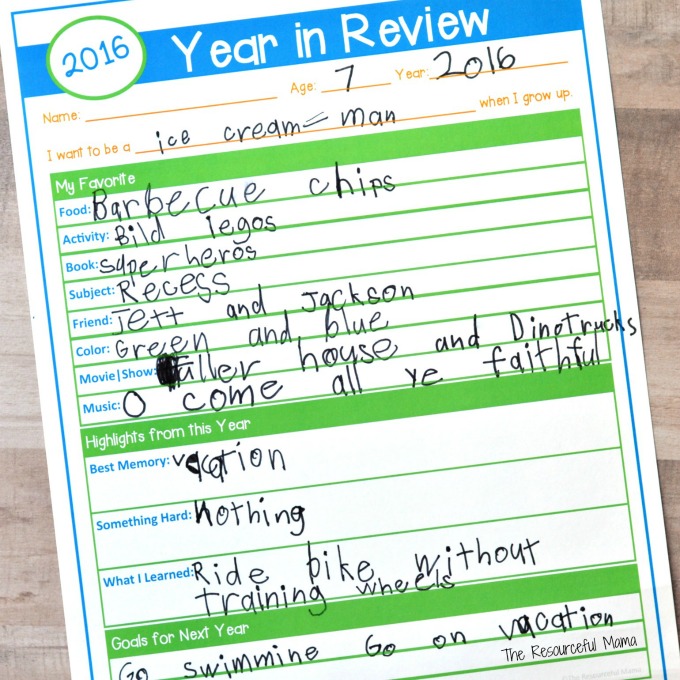 2016 Year in Review
Name: Age: 7 Year: 2016
I want to be a ice cream man when I grow up.
My Favorite
Food: Barbecue chips
Activity: Bild legos
Book: superheros
Subject: Recess
Friend: Jett and Jackson
Color: Green and blue
Movie|Show: fuller house and Dinotrucks
Music: O come all ye faithful
Highlights from this Year
Best Memory: vacation
Something Hard: nothing
What I Learned: Ride bike without
training wheels
Goals for Next Year
Go swimmine Go on vacation
The Resourceful Mama
©The Resourceful Mama